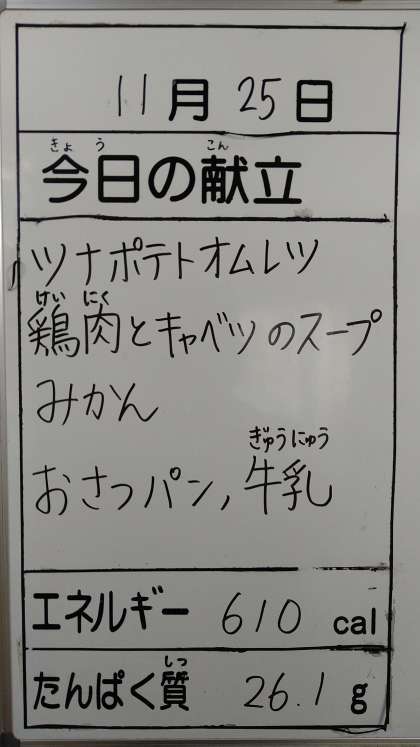 11月25日
きょう こん
今日の献立
ツナポテトオムレツ
けい にく
鶏肉とキャベツのスープ
みかん
ぎゅうにゅう
おさつパン,牛乳
エネルギー 610 cal
しつ
たんぱく質 26.1 g